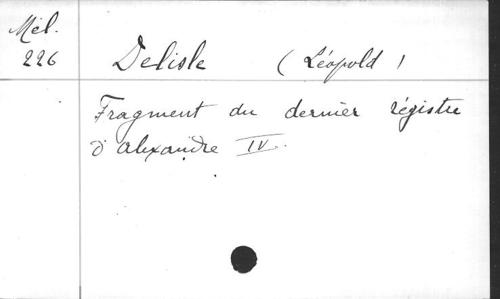 Mél.
226
Delisle (Léopold)
Fragment du dernier régistre
d'Alexandre IV.